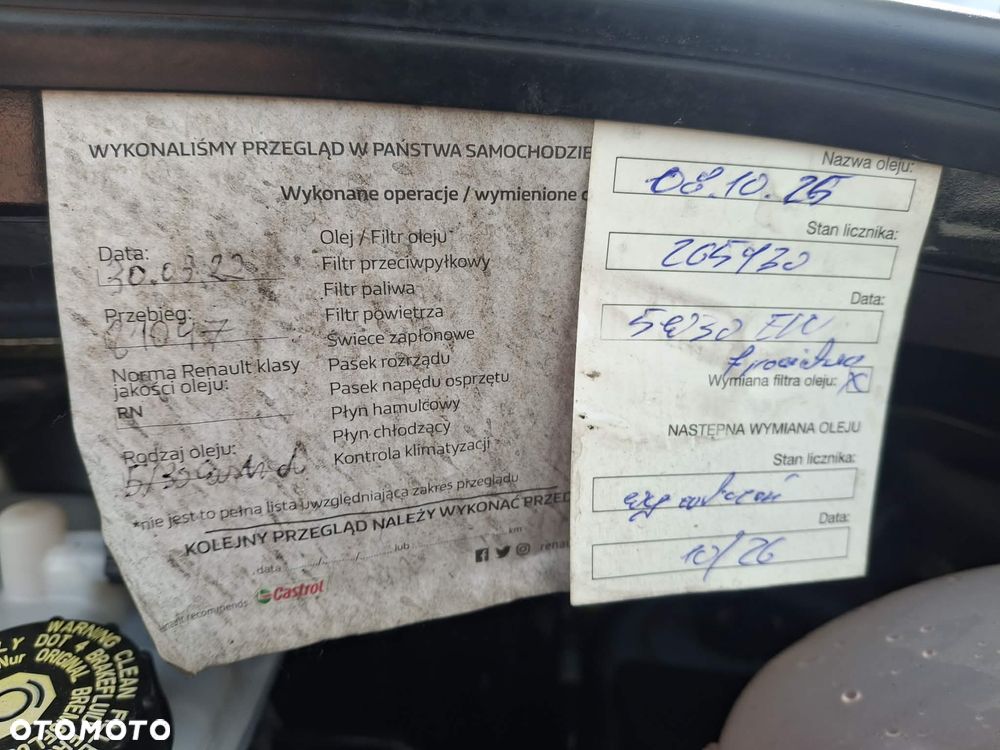 WYKONALIŚMY PRZEGLĄD W PAŃSTWA SAMOCHODZIE
Wykonane operacje / wymienione
Data:
30.03.23
Przebieg:
Norma Renault klasy
jakości oleju:
RN
Rodzaj oleju:
5/30 Castrol
Olej / Filtr oleju*
Filtr przeciwpyłkowy
Filtr paliwa
Filtr powietrza
Świece zapłonowe
Pasek rozrządu
Pasek napędu osprzętu
Płyn hamulcowy
Płyn chłodzący
Kontrola klimatyzacji
*nie jest to pełna lista uwzględniająca zakres przeglądu
KOLEJNY PRZEGLĄD NALEŻY WYKONAĆ PRZED
data ......../......../........ lub ........................ km
Castrol
Nazwa oleju:
08.10.25
Stan licznika:
Data:
5W30
Wymiana filtra oleju: X
NASTĘPNA WYMIANA OLEJU
Stan licznika:
Data:
10/26
WARNING CLEAN
DOT 4 BRAKEFLUID
Nur ORIGINAL
OTOMOTO